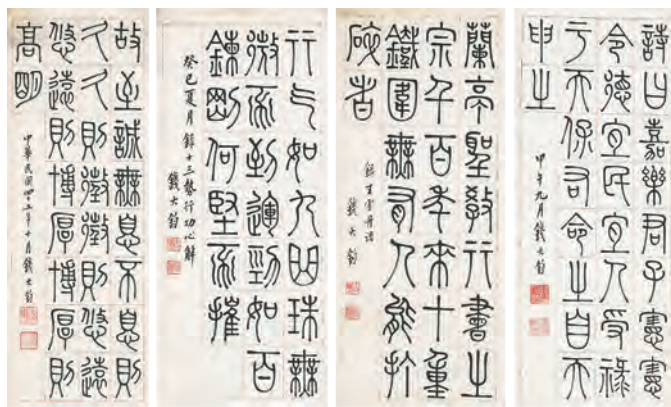 詩曰嘉樂君子憲憲
令德宜民宜人受祿
于天保右命之自天
申之
甲午九月錢大鈞
蘭亭聖教行書之
宗千百年來十重
鐵圍無有人能打
破者
錢大鈞
行气如九曲珠無
微不到運勁如百
鍊剛何堅不摧
癸巳夏月 錄十三勢行功心解
錢大鈞
故至誠無息不息則
久久則徵徵則悠遠
悠遠則博厚博厚則
高明
中華民國四三年十月錢大鈞